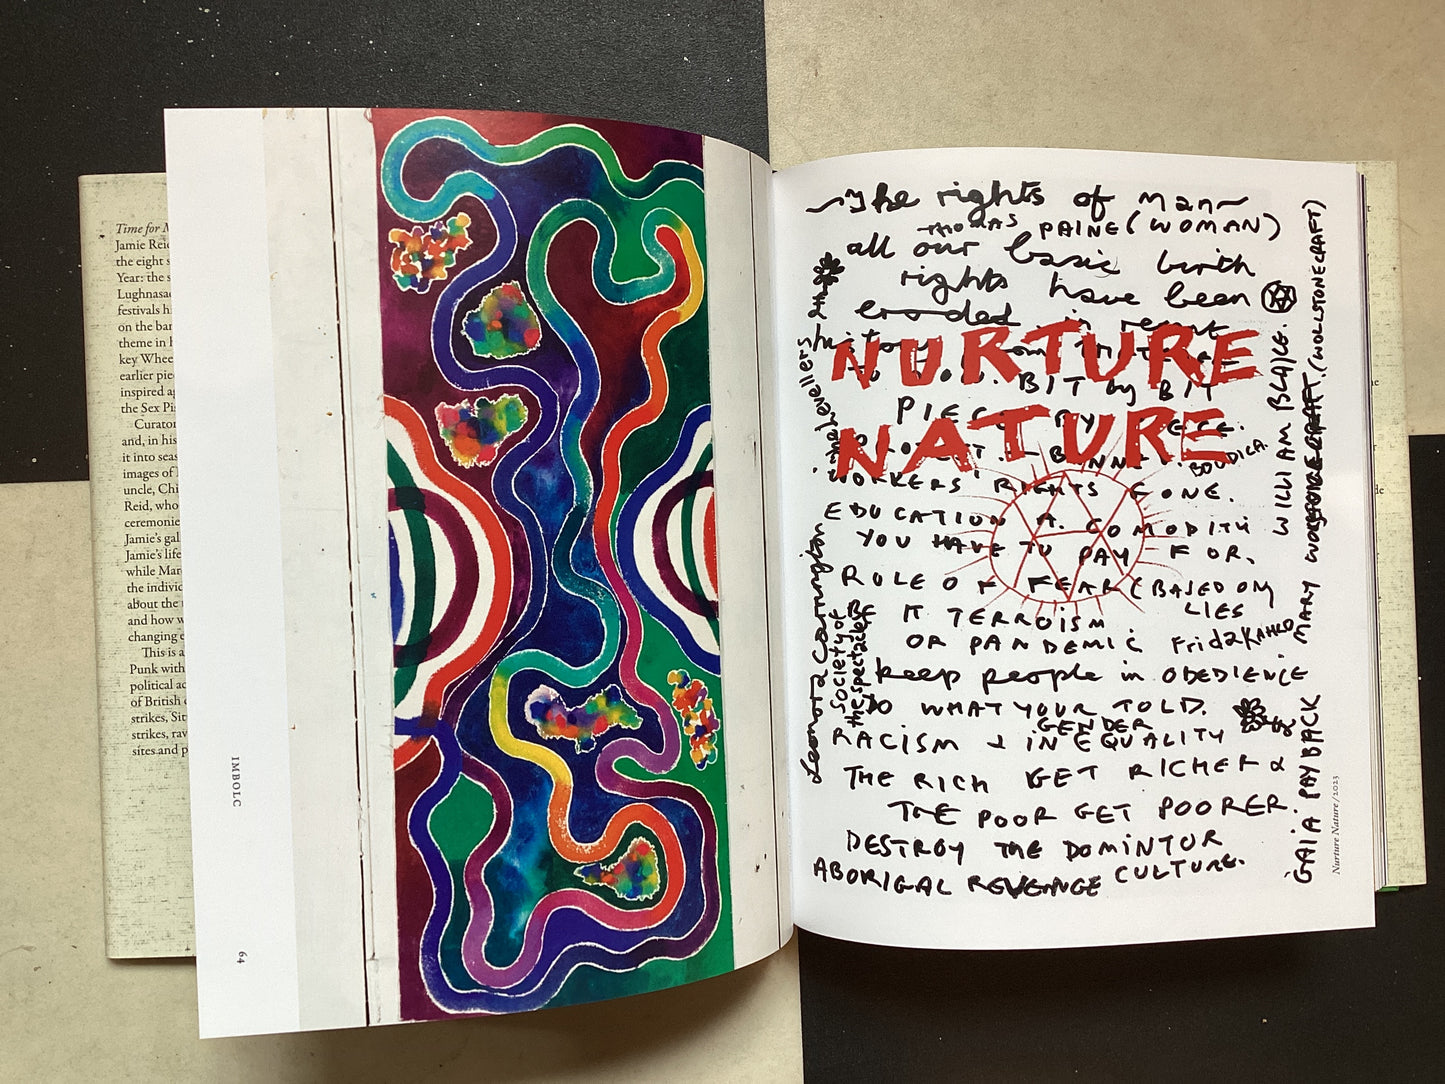 Time for M
Jamie Reid
the eight s
Year: the s
Lughnasad
festivals h
on the ban
theme in h
key Whee
earlier pie
inspired a
the Sex Pis
Curator
and, in his
it into seas
images of
uncle, Chi
Reid, who
ceremonie
Jamie's gal
Jamie's life
while Mar
the individ
about the
and how w
changing e
This is a
Punk with
political ac
of British
strikes, Sit
strikes, rav
sites and p
IMBOLC
64
The rights of man
THOMAS PAINE (WOMAN)
all our basic birth
rights have been
eroded in recent
history
BIT by BIT
PIECE BY
NURTURE
NATURE
BOUDICA
WORKERS' RIGHTS GONE.
EDUCATION A COMODITY
YOU HAVE TO PAY FOR.
RULE OF FEAR (BASED ON
LIES
BE IT TERROISM
OR PANDEMIC Frida KAHLO
keep people in OBEDIENCE
DO WHAT YOUR TOLD.
GENDER
RACISM + INEQUALITY
THE RICH GET RICHER &
THE POOR GET POORER.
DESTROY THE DOMINTOR
CULTURE.
ABORIGAL REVENGE
the Levellers
Leonora Carrington
Society of
the spectacle
WILLIAM BLAKE.
MARY WOLSTONECRAFT. (WOLLSTONECRAFT)
GAIA PAYBACK
Nurture Nature / 2023